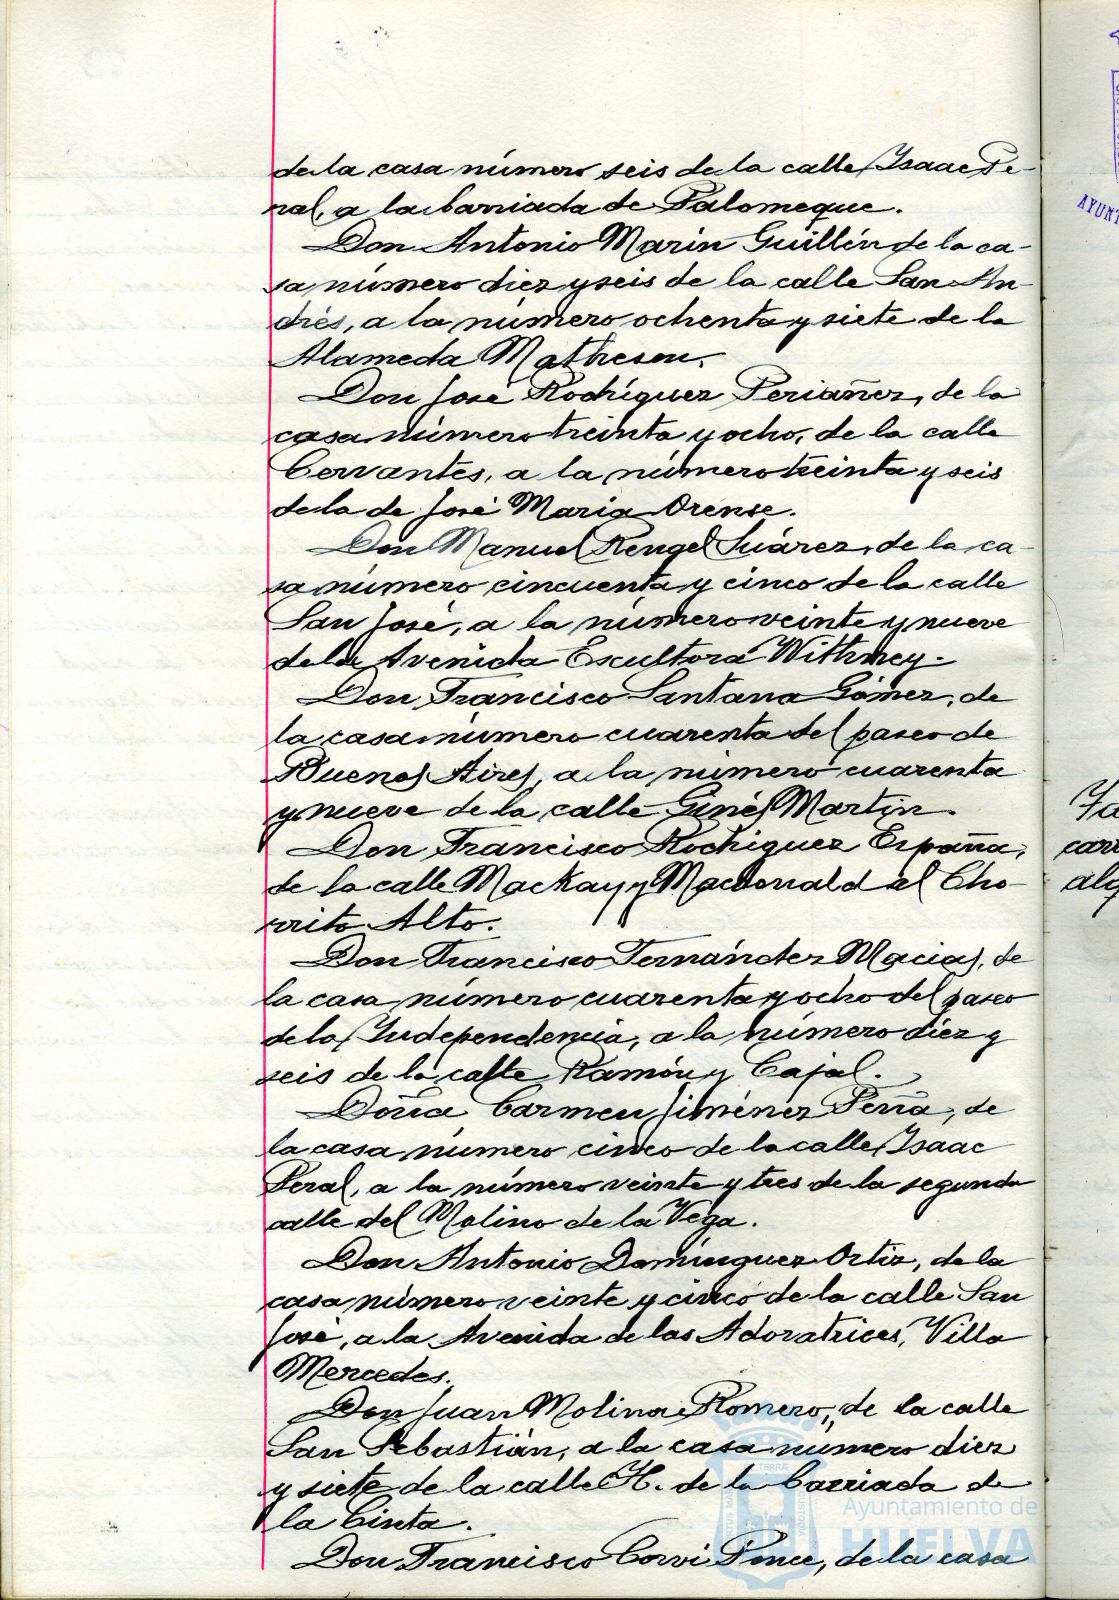 de la casa número seis de la calle Isaac Pe-
ral, a la barriada de Palomeque.
Don Antonio Marín Guillén de la ca-
sa número diez y seis de la calle San An-
drés, a la número ochenta y siete de la
Alameda Matheson.
Don José Rodríguez Periañez, de la
casa número treinta y ocho, de la calle
Cervantes, a la número treinta y seis
de la de José María Orense.
Don Manuel Rengel Suárez, de la ca-
sa número cincuenta y cinco de la calle
San José, a la número veinte y nueve
de la Avenida Escultora Withney.
Don Francisco Santana Gómez, de
la casa número cuarenta del paseo de
Buenos Aires, a la número cuarenta
y nueve de la calle Ginés Martín.
Don Francisco Rodríguez España,
de la calle Mackay y Macdonald al Cho-
rrito Alto.
Don Francisco Fernández Macías, de
la casa número cuarenta y ocho del paseo
de la Independencia, a la número diez y
seis de la calle Ramón y Cajal.
Doña Carmen Jiménez Peña, de
la casa número cinco de la calle Isaac
Peral, a la número veinte y tres de la segunda
calle del Molino de la Vega.
Don Antonio Domínguez Ortiz, de la
casa número veinte y cinco de la calle San
José, a la Avenida de las Adoratrices, Villa
Mercedes.
Don Juan Molina Romero, de la calle
San Sebastián, a la casa número diez
y siete de la calle H. de la barriada de
la Cinta.
Don Francisco Corvi Ponce, de la casa
Ayuntamiento de
HUELVA